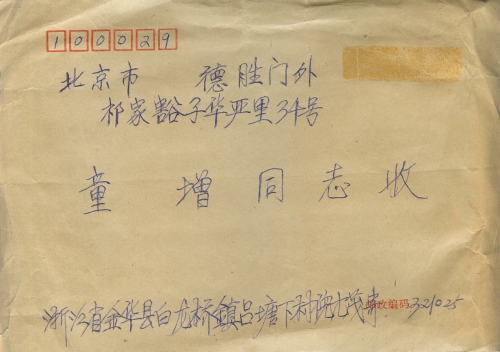 100029
北京市 德胜门外
祁家豁子华严里34号
童增同志收
浙江省金华县白龙桥镇吕塘下村
邮政编码 321025